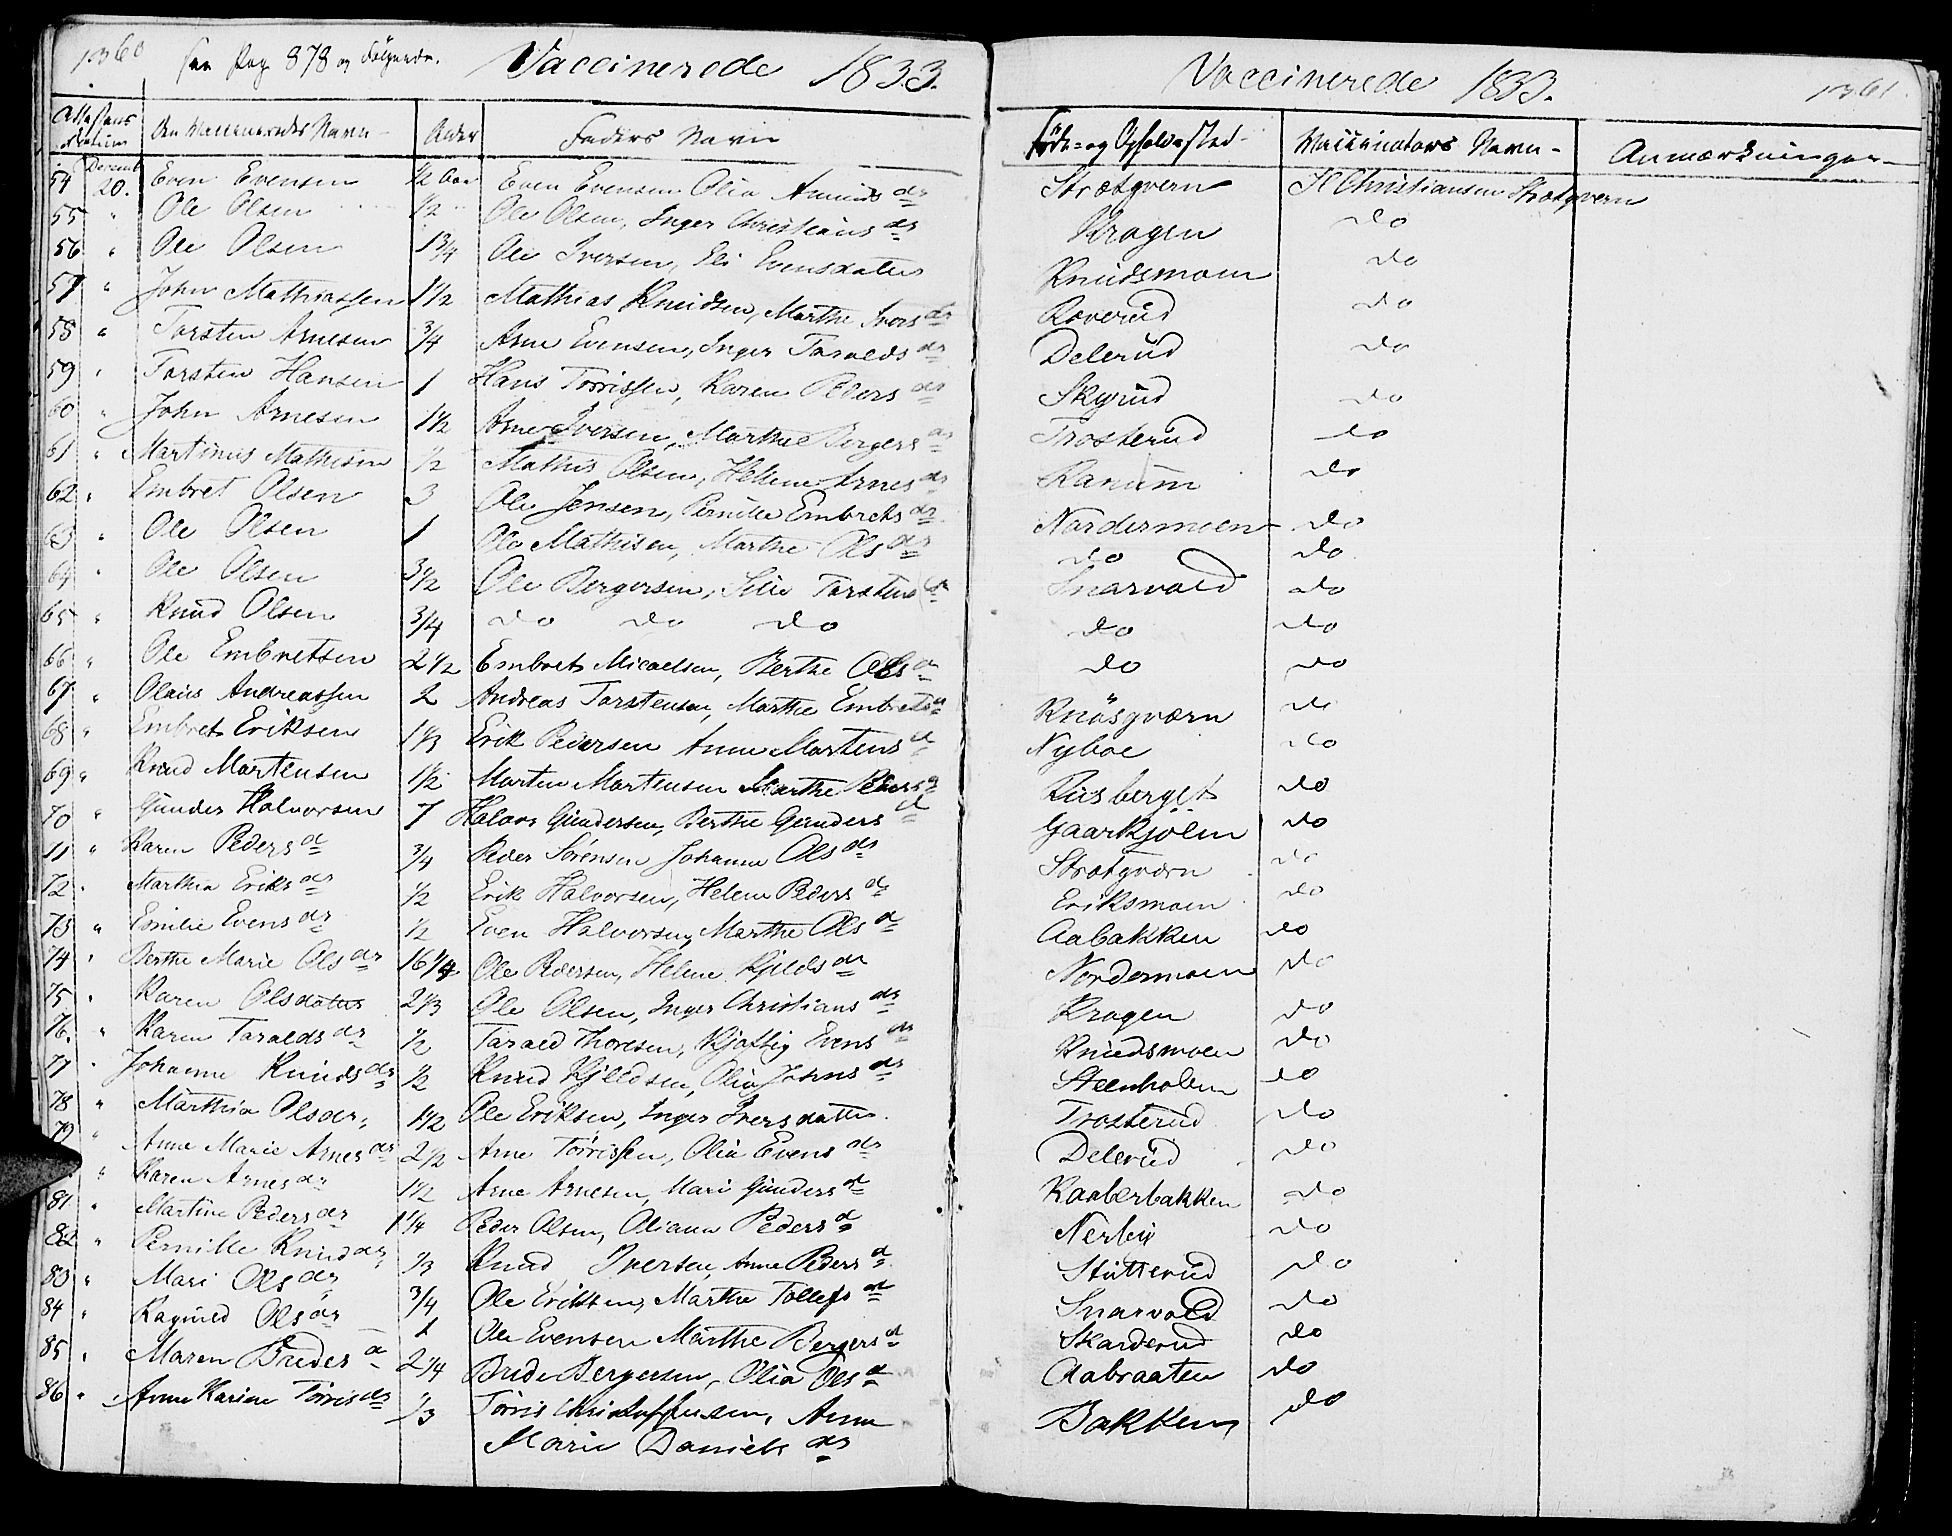 1360 See Pag 878 og Følgende. Vaccinerede 1833.
Vaccinerede 1833. 1361
Attestens Datum Den Vaccineredes Navn Alder Faders Navn Føde- og Opholdssted Vaccinators Navn Anmærkninger
54 Decemb 20. Even Evensen 1/2 Aar Even Evensen Olia Amunds dr Strætqvern H Christiansen Strætqvern
55 " Ole Olsen 1/2 Ole Olsen, Inger Christians dr Kragen do
56 " Ole Olsen 1 3/4 Ole Iversen, Eli Evensdatter Knudsmoen do
57 " John Mathiassen 1 1/2 Mathias Knudsen, Marthe Ivers dr Roverud do
58 " Torsten Arnesen 3/4 Arne Evensen, Inger Taralds dr Delerud do
59 " Torsten Hansen 1 Hans Torrissen, Karen Peders dr Skyrud do
60 " John Arnesen 1 1/2 Arne Iversen, Marthe Bergers dr Trosterud do
61 " Martinus Mathisen 1/2 Mathis Olsen, Hellene Arnes dr Ranum do
62 " Embret Olsen 3 Ole Jensen, Pernille Embrets dr Nordermoen do
63 " Ole Olsen 1 Ole Mathisen, Marthe Ols dr do do
64 " Ole Olsen 3 1/2 Ole Bergersen, Silie Torstens dr Snarvold do
65 " Knud Olsen 3/4 do do do do do
66 " Ole Embretsen 2 1/2 Embret Micaelsen, Berthe Ols d do do
67 " Olaus Andreassen 2 Andreas Torstensen, Marthe Embrets d Knøsqværn do
68 " Embret Eriksen 1 1/3 Erik Pedersen Anne Martens d Nyboe do
69 " Knud Martensen 1 1/2 Morten Martensen Marthe Peders d Riisberget do
70 " Gunder Halvorsen 7 Halvor Gundersen, Berthe Gunders d Gaarkjølen do
71 " Karen Peders d 3/4 Peder Sørensen Johanne Ols dr Strætqværn do
72 " Marthia Eriks dr 1/2 Erik Halvorsen, Helene Peders dr Eriksmoen do
73 " Emilie Evens dr 1/2 Even Halvorsen, Marthe Ols d Aabakken do
74 " Berthe Marie Ols dr 16 1/4 Ole Pedersen, Helene Kjelds dr Nordermoen do
75 " Karen Olsdatter 2 1/3 Ole Olsen, Inger Christians dr Kragen do
76. " Karen Taralds dr 1/2 Tarald Thoresen, Kjøstig Evens dr Knudsmoen do
77 " Johanne Knuds dr 1/2 Knud Kjeldsen, Olia Johns dr Steenholen do
78 " Marthia Olsdr. 1 1/2 Ole Eriksen, Inger Iversdatter. Trosterud do
79 " Anne Marie Arnes dr 2 1/2 Arne Tørrissen, Olia Evens dr Delerud do
" Karen Arnes dr 1 1/2 Arne Arnesen, Mari Gunders d Kaaberbakken do
81 " Martine Peders dr 1 1/4 Peder Olsen, Oliana Peders d Nerby do
82 " Pernille Knud dr 1/3 Knud Iversen, Anne Peders d Stutterud do
83 " Mari Ols dr 3/4 Ole Eriksen, Marthe Tollefs dr Snarvold do
84 " Ragnild Ols dr 1 Ole Evensen Marthe Bergers d Skarderud do
85 " Maren Breders d 2 1/4 Brede Bergersen, Olia Ols d Aabraaten do
86 " Anne Karine Tørris dr 1/3 Tørris Christophersen, Anne Bakken do
Marie Daniels dr